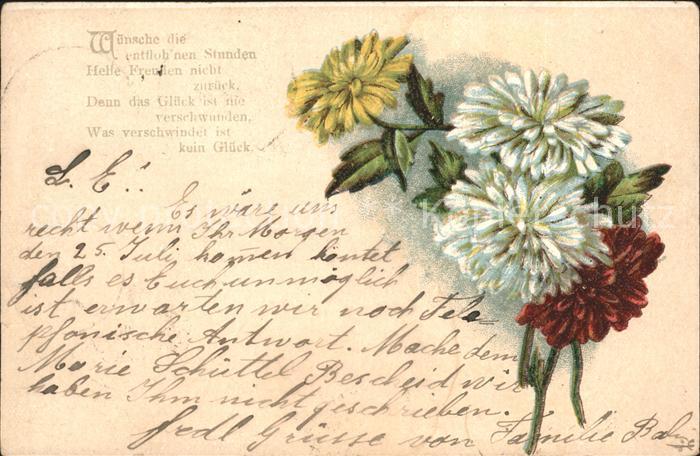 Wünsche die
entfloh'nen Stunden
Helle Freuden nicht
zurück,
Denn das Glück ist nie
verschwunden,
Was verschwindet ist
kein Glück.
L. E.!
Es wäre uns
recht wenn Ihr Morgen
den 25. Juli kom̄en könntet
falls es Euch unmöglich
ist erwarten wir noch Tele-
pfonische Antwort. Mache dem
Marie Schüttel Bescheid wir
haben Ihm nicht geschrieben.
frdl Grüsse von Familie